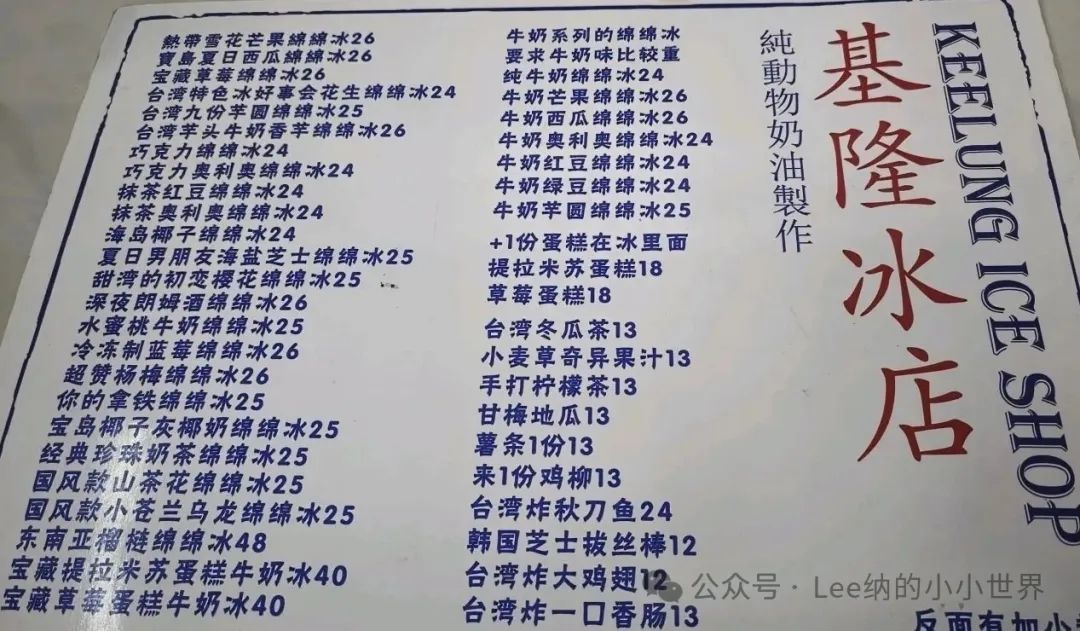 熱帶雪花芒果綿綿冰26
寶島夏日西瓜綿綿冰26
宝藏草莓绵绵冰26
台湾特色冰好事会花生绵绵冰24
台湾九份芋圆绵绵冰25
台湾芋头牛奶香芋绵绵冰26
巧克力绵绵冰24
巧克力奥利奥绵绵冰24
抹茶红豆绵绵冰24
抹茶奥利奥绵绵冰24
海岛椰子绵绵冰24
夏日男朋友海盐芝士绵绵冰25
甜湾的初恋樱花绵绵冰25
深夜朗姆酒绵绵冰26
水蜜桃牛奶绵绵冰25
冷冻制蓝莓绵绵冰26
超赞杨梅绵绵冰26
你的拿铁绵绵冰25
宝岛椰子灰椰奶绵绵冰25
经典珍珠奶茶绵绵冰25
国风款山茶花绵绵冰25
国风款小苍兰乌龙绵绵冰25
东南亚榴梿绵绵冰48
宝藏提拉米苏蛋糕牛奶冰40
宝藏草莓蛋糕牛奶冰40
牛奶系列的绵绵冰
要求牛奶味比较重
纯牛奶绵绵冰24
牛奶芒果绵绵冰26
牛奶西瓜绵绵冰26
牛奶奥利奥绵绵冰24
牛奶红豆绵绵冰24
牛奶绿豆绵绵冰24
牛奶芋圆绵绵冰25
+1份蛋糕在冰里面
提拉米苏蛋糕18
草莓蛋糕18
台湾冬瓜茶13
小麦草奇异果汁13
手打柠檬茶13
甘梅地瓜13
薯条1份13
来1份鸡柳13
台湾炸秋刀鱼24
韩国芝士拔丝棒12
台湾炸大鸡翅12
台湾炸一口香肠13
純動物奶油製作
基隆冰店
KEELUNG ICE SHOP
反面有加小
公众号 · Lee纳的小小世界